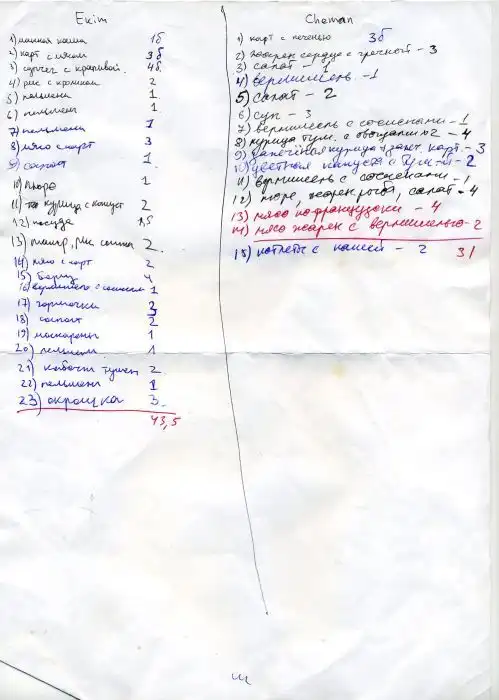 Ekim
1) манная каша 1б
2) карт с мясом 3б
3) супчег с крапивой. 4б.
4) рис с кроликом 2
5) пельмени 1
6) пельмени 1
7) пельмени 1
8) мясо с карт 3
9) салат 1.
10) пюре 1
11) курица с капуст 2
12) посуда 1,5
13) рис 2
14) мясо с карт 2
15) борщ 4
16) вермишель с сосиськ 1
17) горшочки 3
18) 2
19) макароны 1
20) пельмени 1
21) кабачки тушен 2
22) пельмени 1
23) окрошка 3.
43,5
Cheman
1) карт с печенью 3б
2) жарен сердце с гречкой - 3
3) салат - 1
4) вермишель - 1
5) салат - 2
6) суп - 3
7) вермишель с сосисками - 1
8) курица туш. с овощами - 4
9) запечёная курица карт. - 3
10) цветная капуста с - 2
11) вермишель с сосисками - 1
12) пюре, жарен рыба, салат - 4
13) мясо пофранцузски - 4
14) мясо жарен с вермишелью - 2
15) котлеты с кашей - 2 31